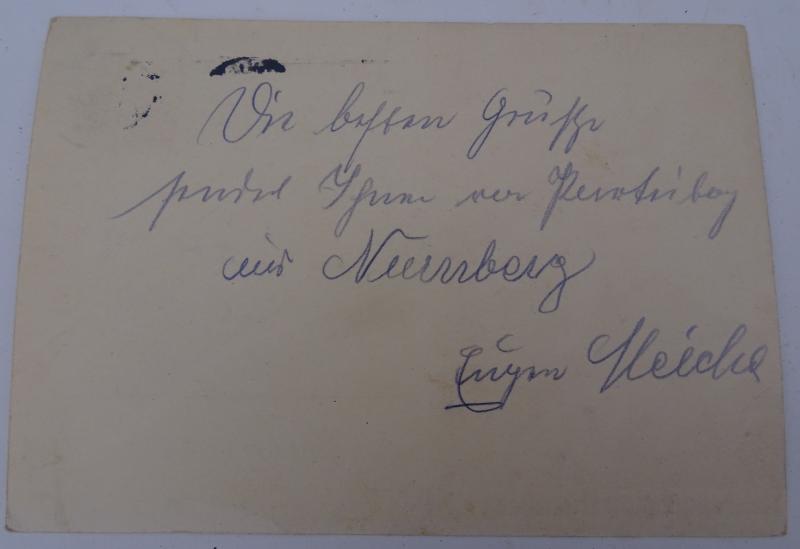 Die besten Grüße
sendet Ihnen vom Parteitag
aus Nürnberg
Eugen